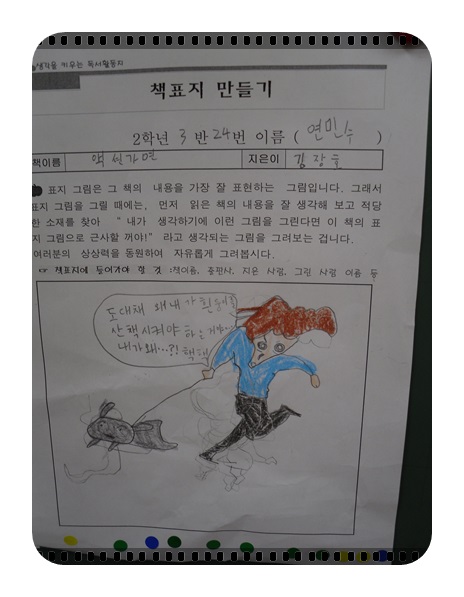 생각을 키우는 독서활동지
책표지 만들기
2학년 3 반 24번 이름 ( 연민수 )
책이름 액 씬 가면 지은이 김 장 훈
표지 그림은 그 책의 내용을 가장 잘 표현하는 그림입니다. 그래서
표지 그림을 그릴 때에는, 먼저 읽은 책의 내용을 잘 생각해 보고 적당
한 소재를 찾아 “ 내가 생각하기에 이런 그림을 그린다면 이 책의 표
지 그림으로 근사할 꺼야!” 라고 생각되는 그림을 그려보는 겁니다.
여러분의 상상력을 동원하여 자유롭게 그려봅시다.
☞ 책표지에 들어가야 할 것 :책이름, 출판사, 지은 사람, 그린 사람 이름 등
도대체 왜 내가 흰둥이를
산책시켜야 하는
내가 왜...?! 헉헉